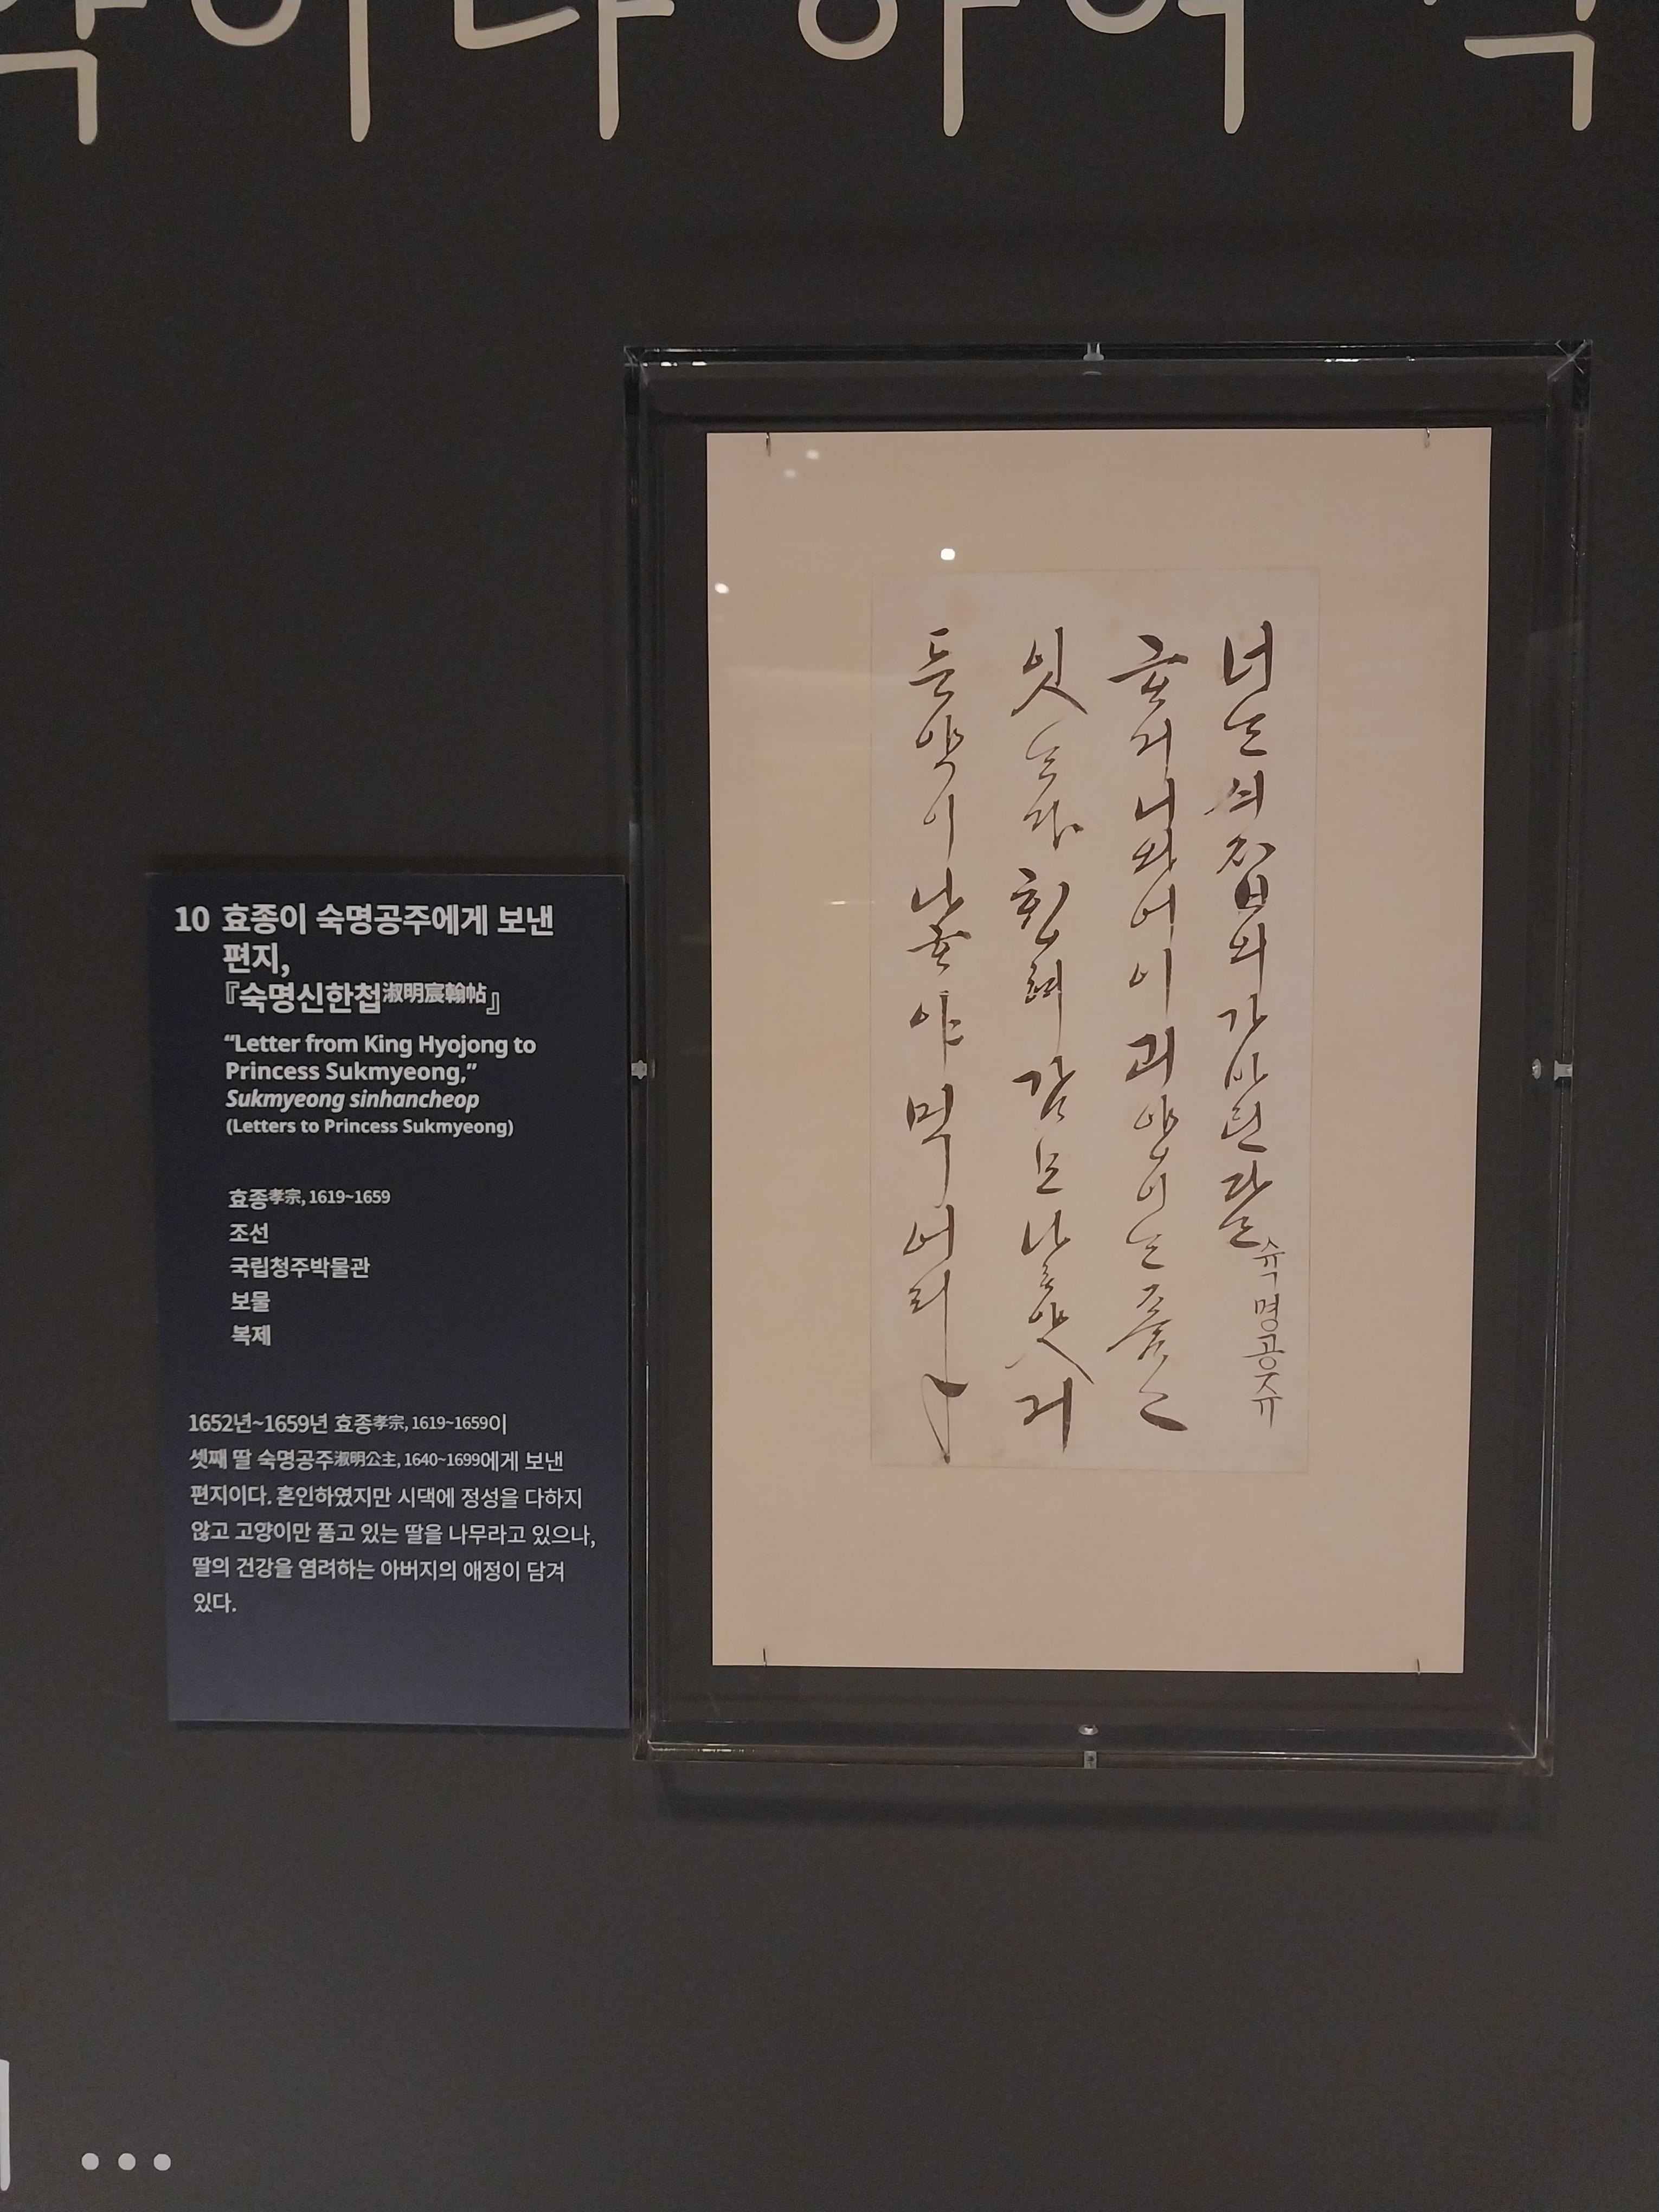 10 효종이 숙명공주에게 보낸
편지,
『숙명신한첩淑明宸翰帖』
“Letter from King Hyojong to
Princess Sukmyeong,”
Sukmyeong sinhancheop
(Letters to Princess Sukmyeong)
효종孝宗, 1619~1659
조선
국립청주박물관
보물
복제
1652년~1659년 효종孝宗, 1619~1659이
셋째 딸 숙명공주淑明公主, 1640~1699에게 보낸
편지이다. 혼인하였지만 시댁에 정성을 다하지
않고 고양이만 품고 있는 딸을 나무라고 있으나,
딸의 건강을 염려하는 아버지의 애정이 담겨
있다.
슉명공쥬
너는 싀집의 가 바틴다는
ᄒᆞ거니와 어이 괴양이는 품고
잇는다 ᄒᆡᆼ혀 감모나 ᄒᆞ얏거
든 약이나 ᄒᆞ야 먹어라